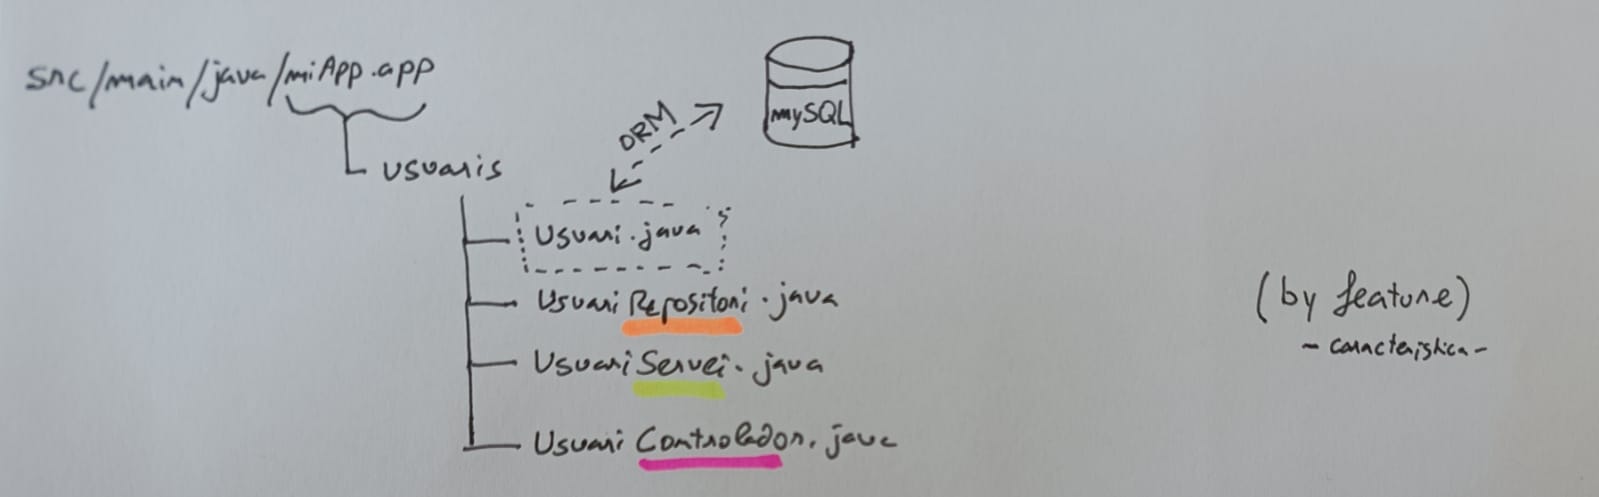 src/main/java/miApp.app
mySQL
ORM
usuaris
Usuari.java
UsuariRepositori.java
UsuariServei.java
UsuariControlador.java
(by feature)
- característica -